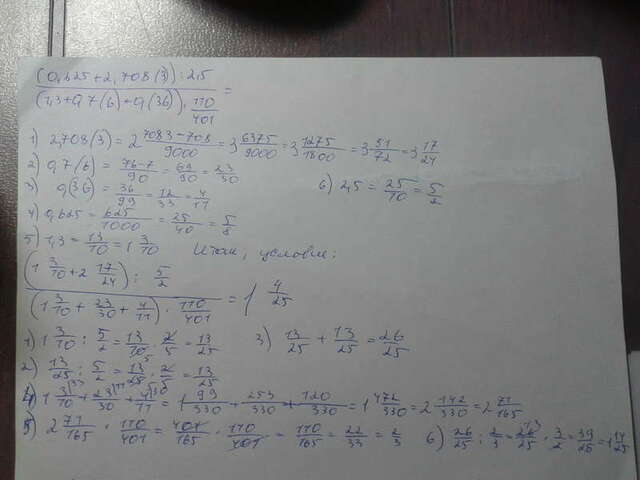 (0,625+2,708(3)):2,5
(1,3+0,7(6)+0,(36))·110/401 =
1) 2,708(3)=2 7083-708/9000=3 6375/9000=3 1275/1800=3 51/72=3 17/24
2) 0,7(6)=76-7/90=69/90=23/30
6) 2,5=25/10=5/2
3) 0,(36)=36/99=12/33=4/11
4) 0,625=625/1000=25/40=5/8
5) 1,3=13/10=1 3/10
Итак, условие:
(1 3/10+2 17/24):5/2
(1 3/10+23/30+4/11)·110/401 =1 4/25
1) 1 3/10:5/2=13/10·2/5=13/25
3) 13/25+13/25=26/25
2) 13/25:5/2=13/25·2/5=13/25
4) 1 3/10+23/30+4/11=1 99/330+253/330+120/330=1 472/330=2 142/330=2 71/165
5) 2 71/165·110/401=401/165·110/401=110/165=22/33=2/3
6) 26/25:2/3=26/25·3/2=39/25=1 14/25